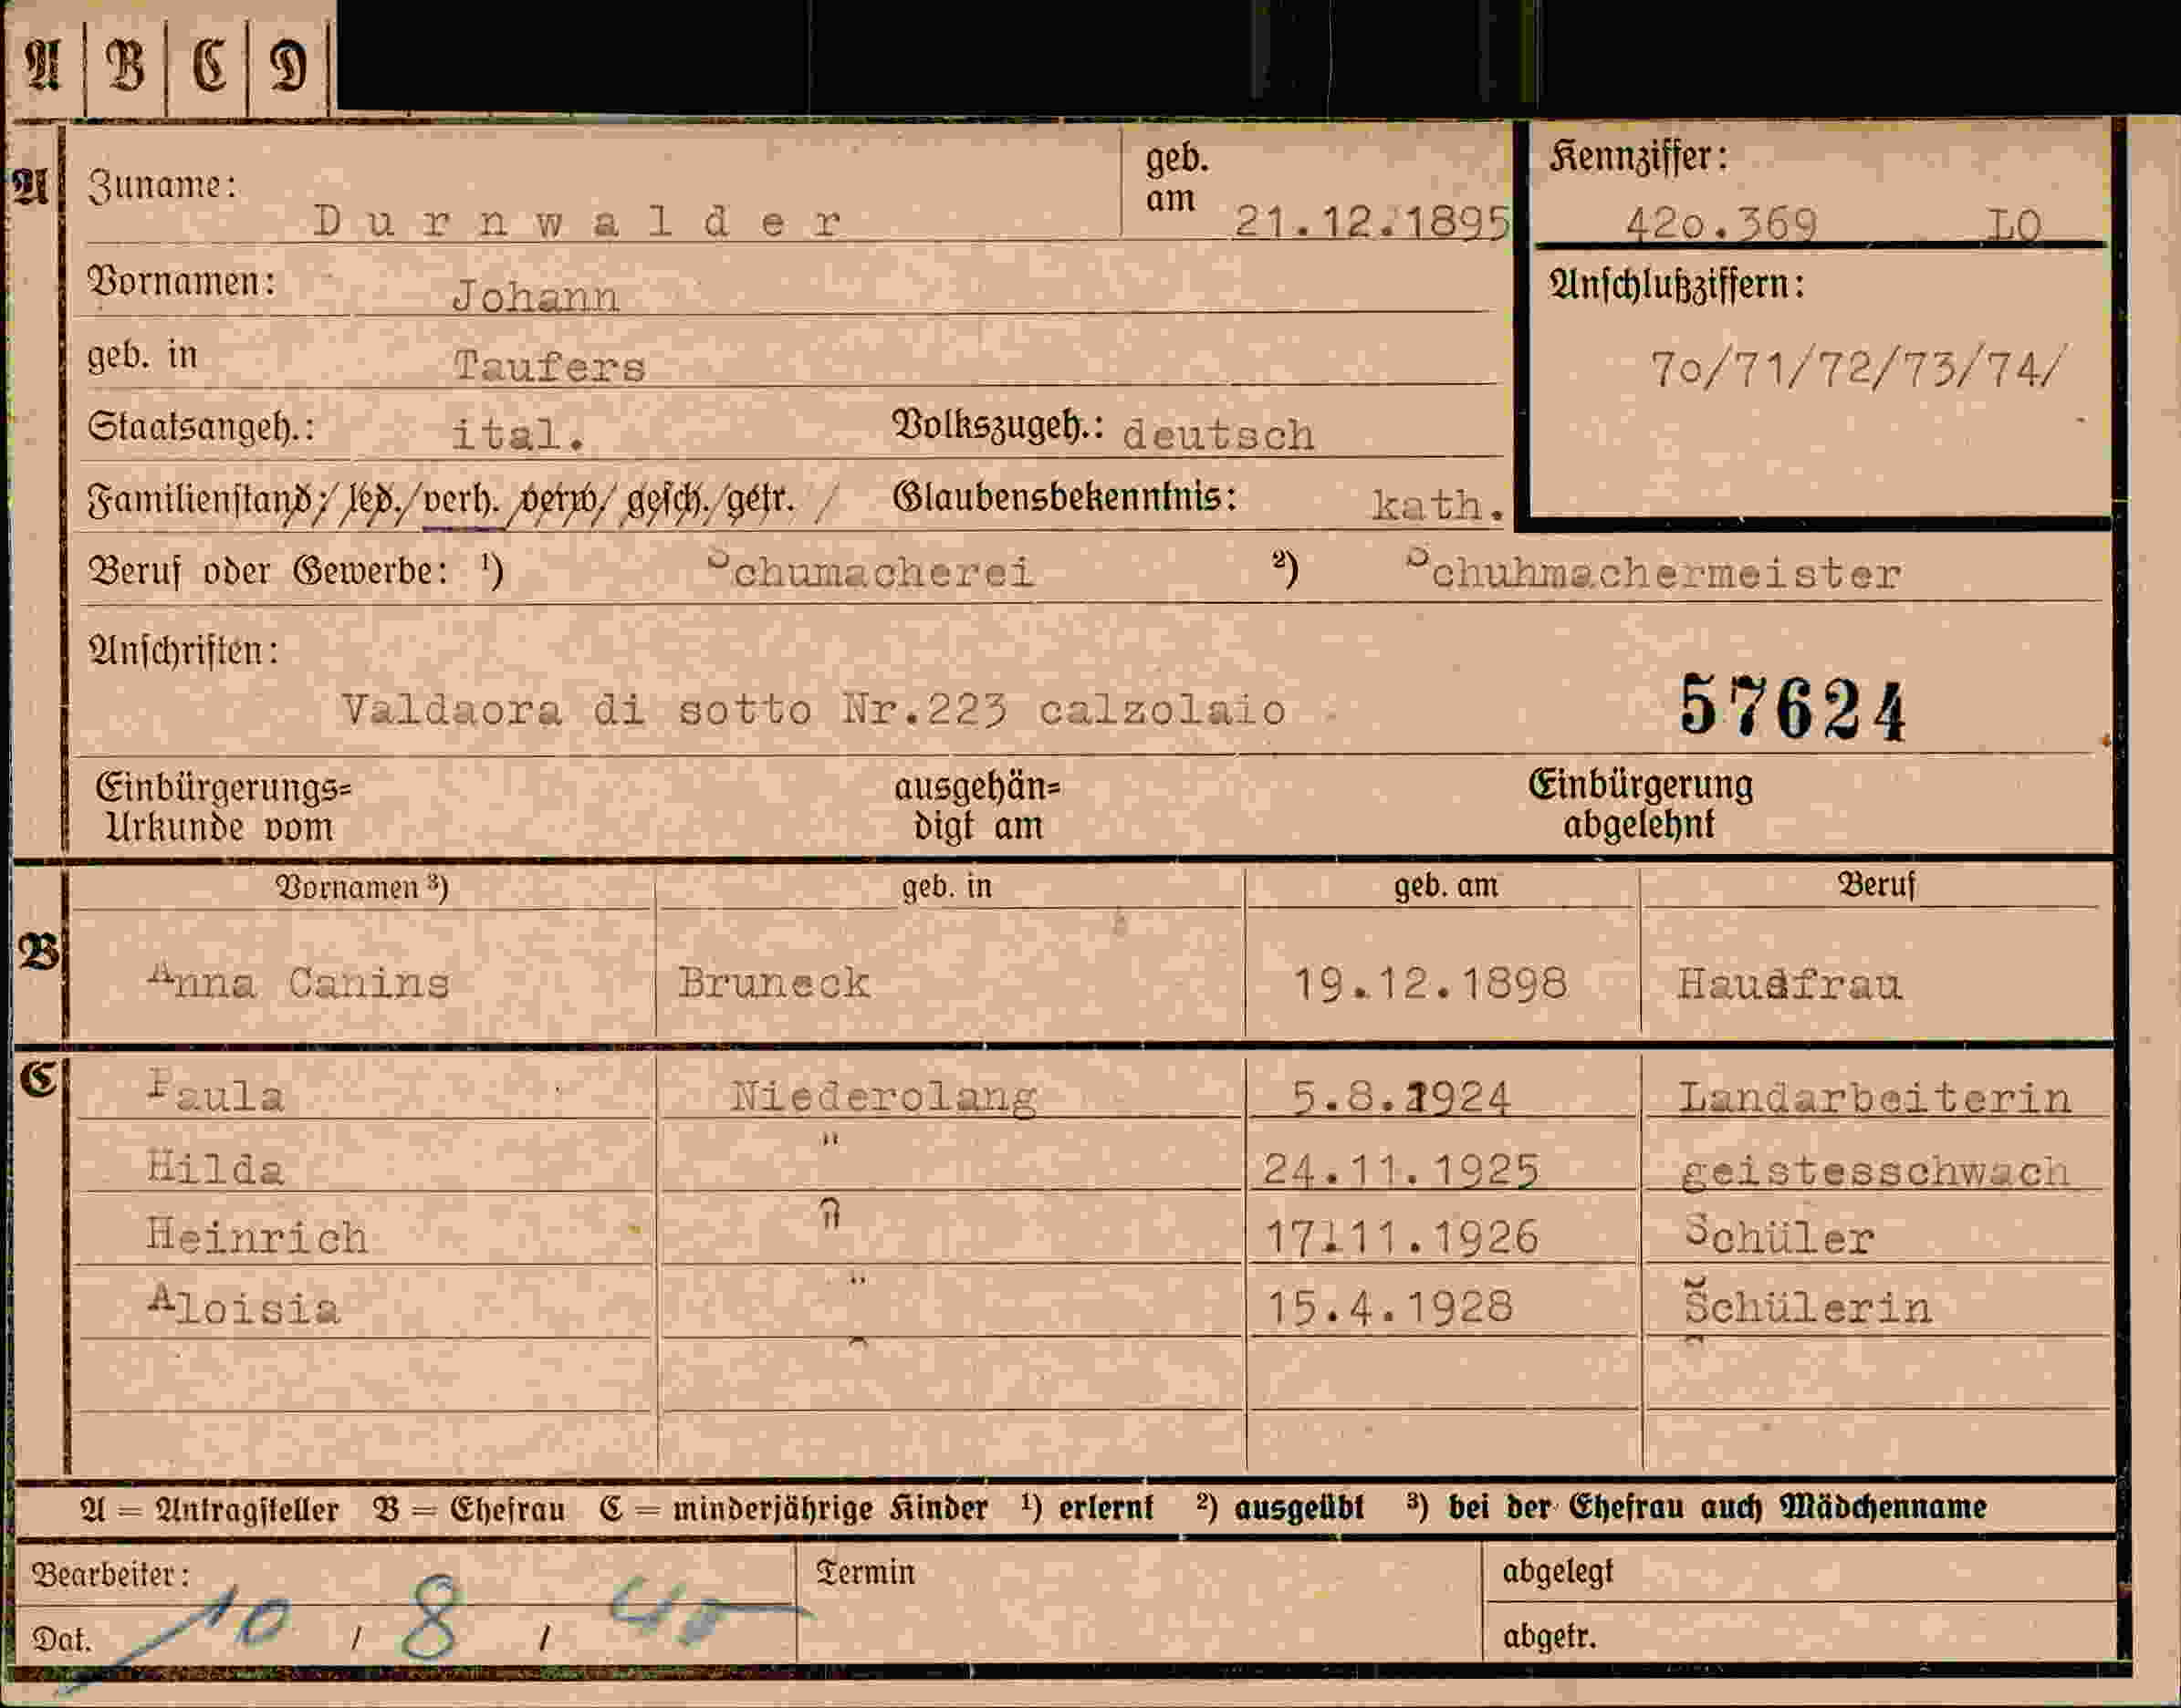 A | B | C | D |
A Zuname: Durnwalder geb. am 21.12.1895
Kennziffer: 42o.369 LO
Vornamen: Johann
Anschlußziffern:
7o/71/72/73/74/
geb. in Taufers
Staatsangeh.: ital. Volkszugeh.: deutsch
Familienstand: / led. / verh. verw / gesch. / getr. / Glaubensbekenntnis: kath.
Beruf oder Gewerbe: ¹) Schumacherei ²) Schuhmachermeister
Anschriften:
Valdaora di sotto Nr.223 calzolaio 57624
Einbürgerungs= Urkunde vom
ausgehän= digt am
Einbürgerung abgelehnt
B Vornamen ³) geb. in geb. am Beruf
Anna Canins Bruneck 19.12.1898 Hausfrau
C Paula Niederolang 5.8.1924 Landarbeiterin
Hilda " 24.11.1925 geistesschwach
Heinrich " 17.11.1926 Schüler
Aloisia " 15.4.1928 Schülerin
A = Antragsteller B = Ehefrau C = minderjährige Kinder ¹) erlernt ²) ausgeübt ³) bei der Ehefrau auch Mädchenname
Bearbeiter: Termin abgelegt
Dat. 10 / 8 / 40 abgetr.